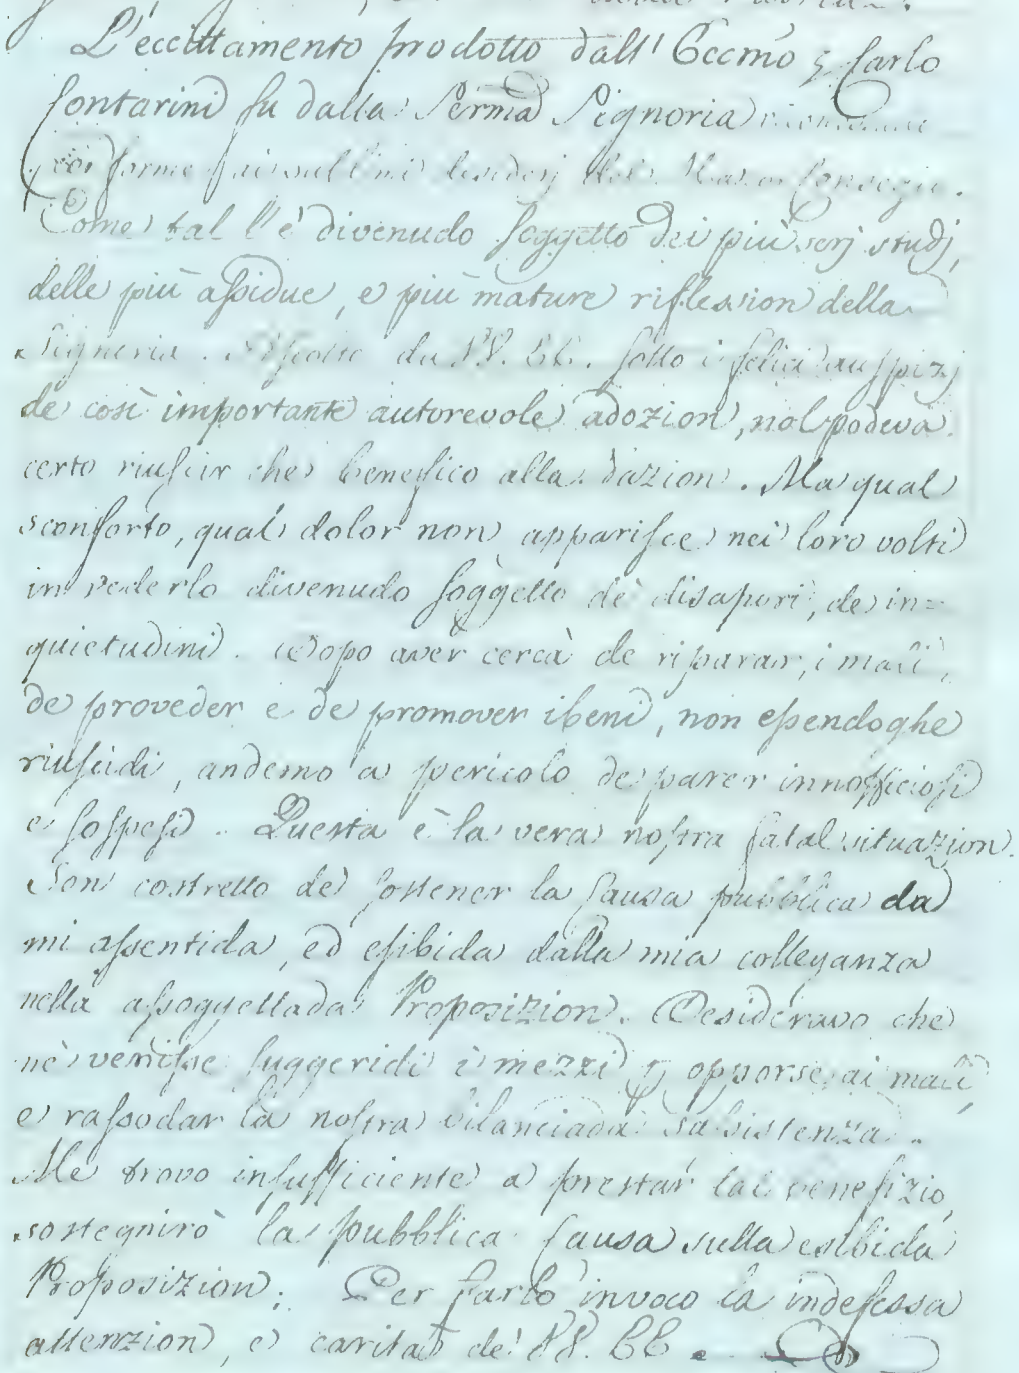 L'eccittamento prodotto dall' Eccmo ʒ Carlo
Contarini fu dalla Serma Signoria
conforme desiderj del Consegio.
Come tal l'è divenudo soggetto dei più serj studj,
delle più assidue, e più mature riflession della
Signeria. da VV. EE. sotto i felici auspizj
de così importante autorevole adozion, nol podeva
certo riuscir che benefico alla Nazion. Ma qual
sconforto, qual dolor non apparisce nei loro volti
in vederlo divenudo soggetto de disapori, de in=
quietudini. Dopo aver cercà de riparar i mali,
de proveder e de promover i beni, non essendoghe
riuscidi, andemo a pericolo de parer innofficiosi
e sospesi. Questa è la vera nostra fatal situazion.
Son costretto de sostener la Causa pubblica da
mi assentida, ed esibida dalla mia colleganza
nella assoggettada Proposizion. Desideravo che
nè venisse suggeridi i mezzi ꝑ opporse ai mali,
e rassodar la nostra bilanciada sussistenza.
Me trovo insufficiente a prestar tal benefizio,
sostegnirò la pubblica Causa sulla esibida
Proposizion. Per farlo invoco la indefessa
attenzion, e carità de' VV. EE.